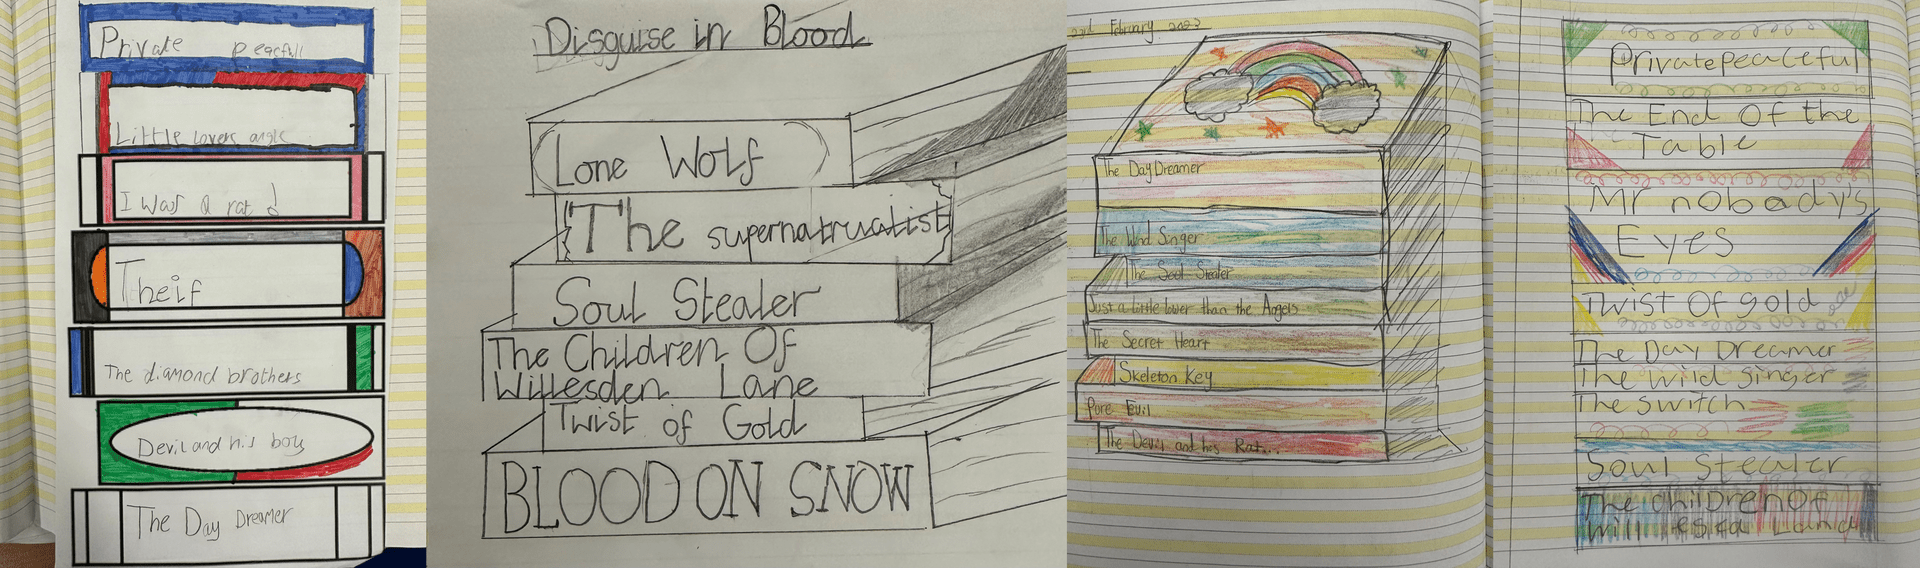 Private peacfull
Little lovers angle
I Was a rat !
Theif
The diamond brothers
Devil and his boy
The Day Dreamer
Disguise in Blood
Lone Wolf
"The supernatrualist
Soul Stealer
The Children Of
Willesden Lane
Twist of Gold
BLOOD ON SNOW
February 2023
The Day Dreamer
The Wind Singer
The Soul Stealer
Just a little lower than the Angels
The Secret Heart
Skeleton Key
Pure Evil
The Devil and his Rat...
Private peaceful
The End Of the
Table
Mr nobody's
Eyes
Twist Of gold
The Day Dreamer
The wild singer
The switch
Soul Stealer
The children Of